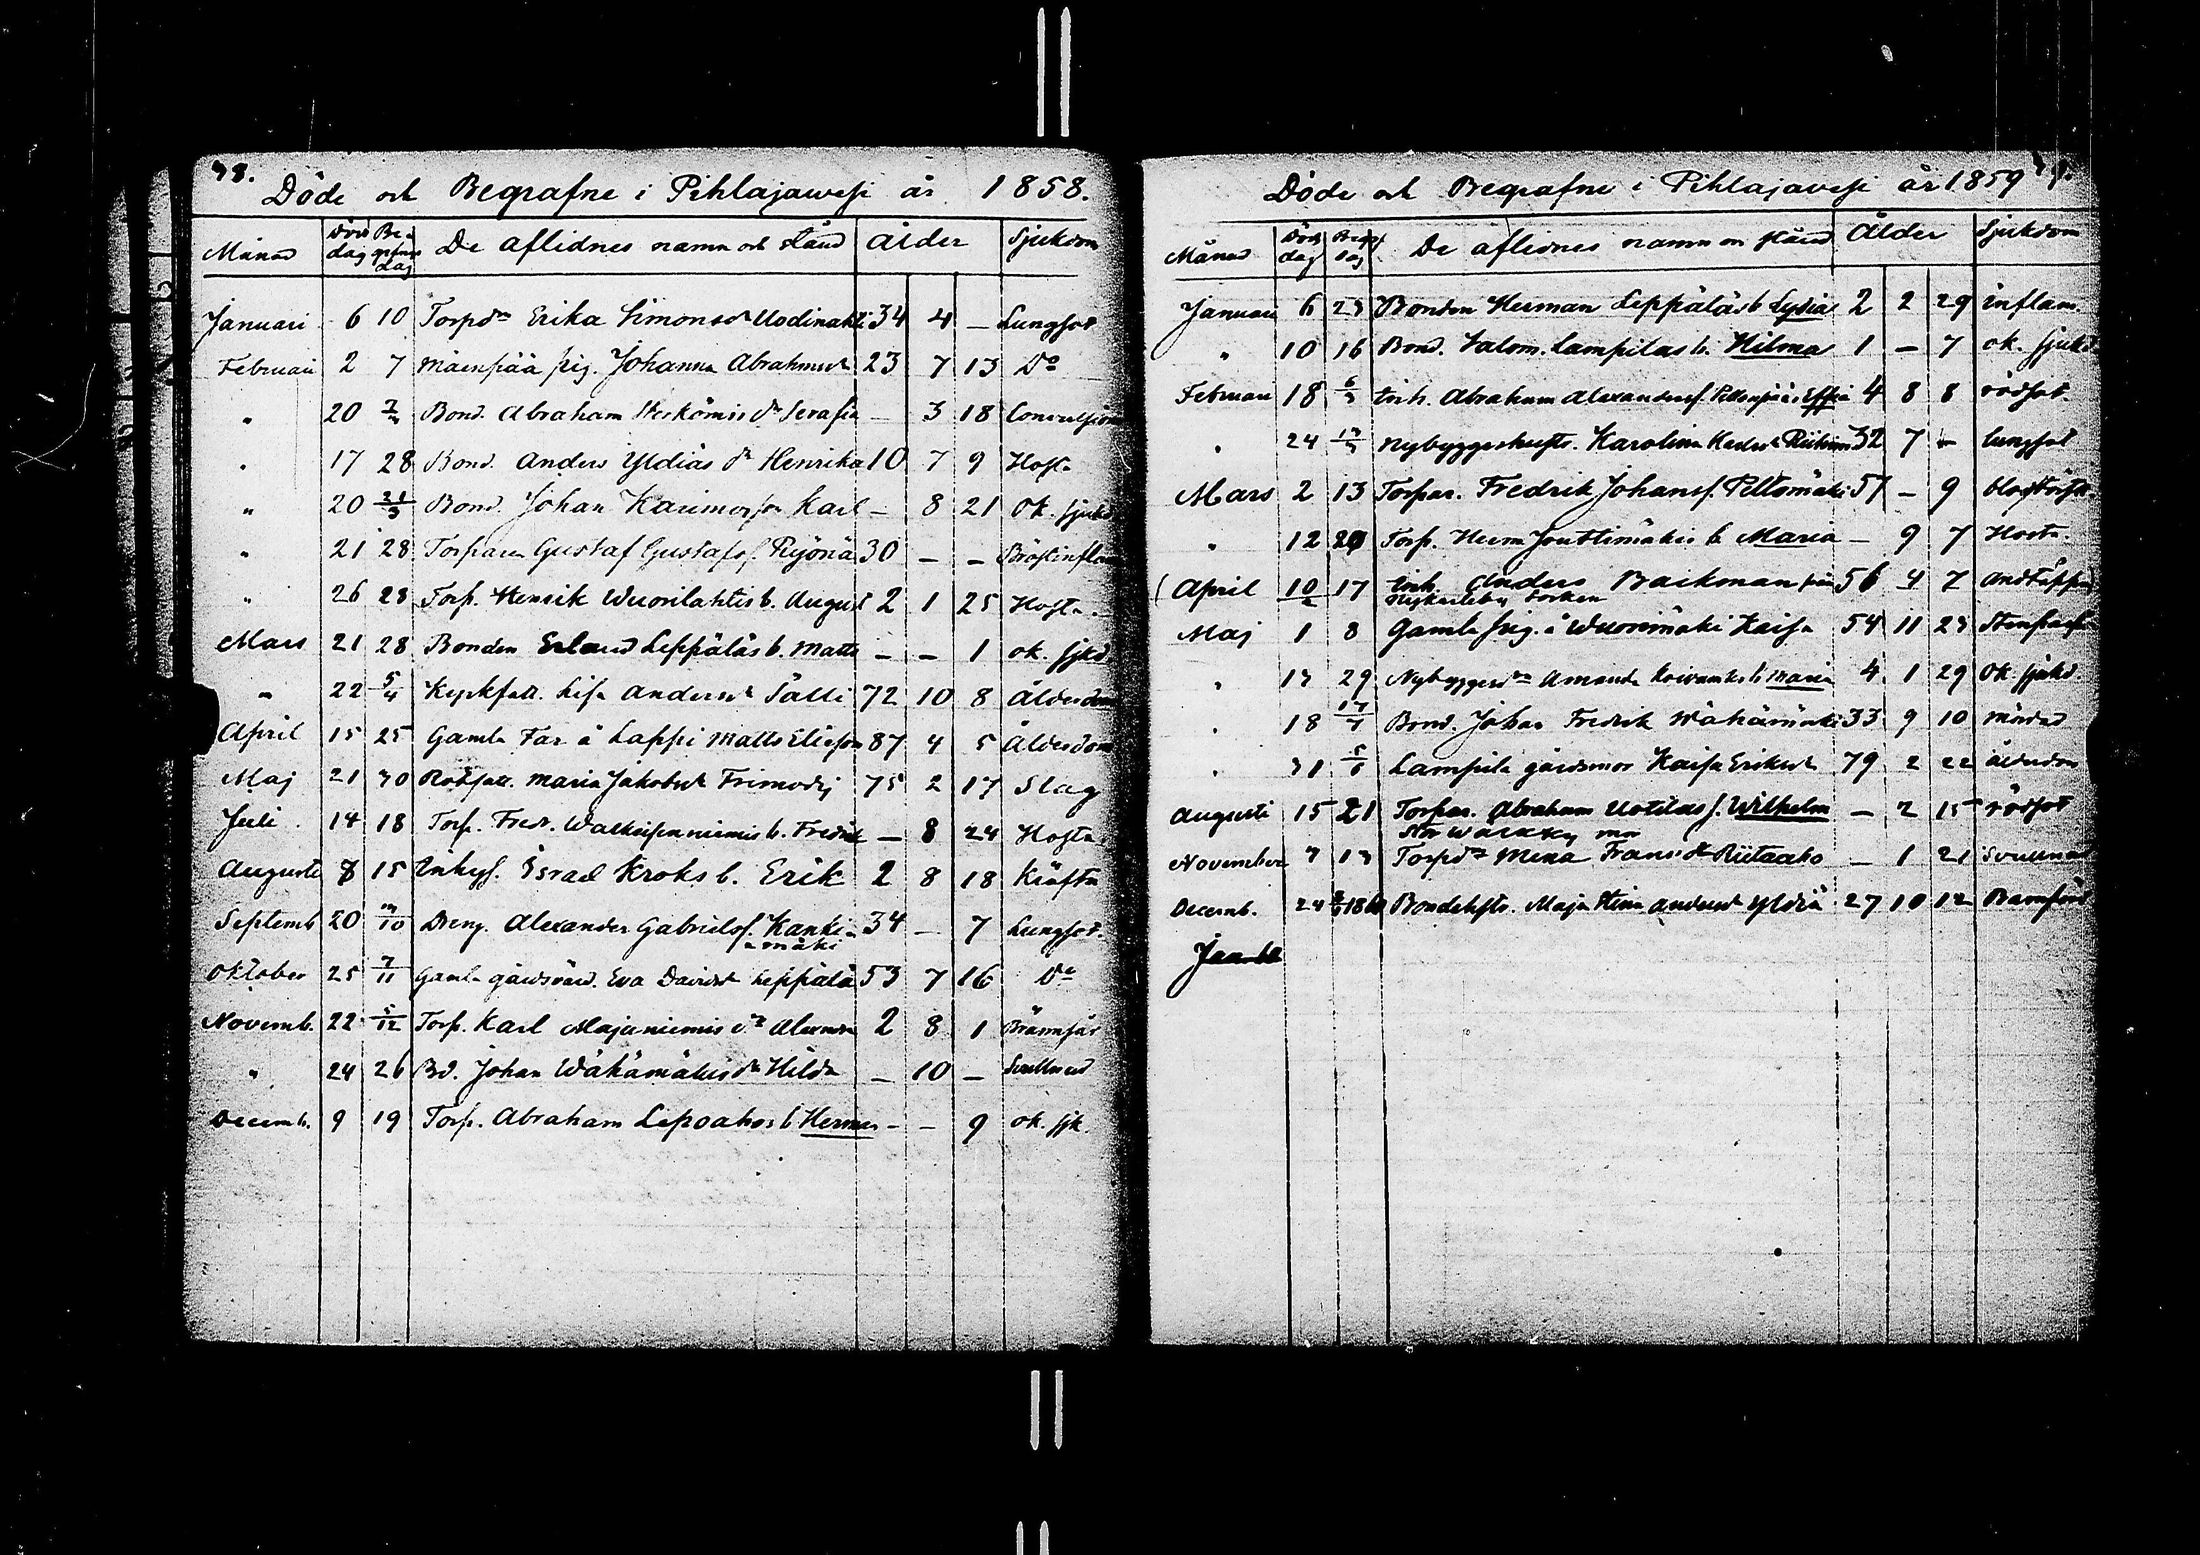 38.
Döde och Begrafne i Pihlajawesi år 1858.
Månad Döds dag Be- grafn. dag De aflidnes namn och stånd ålder Sjukdom
Januari 6 10 Torpdr Erika Simonsdr Uodinahti 34 4 — Lungsot
Februari 2 7 Mäenpää pig. Johanna Abrahmsdr 23 7 13 Do
" 20 Bond. Abraham dr Serafia — 3 18 Convulsion
" 17 28 Bond. Anders Yldiäs dr Henrika 10 7 9 Hosta
" 20 21/3 Bond. Johan Karimos son Karl — 8 21 Ok. sjukd
" 21 28 Torparen Gustaf Gustafss. Ryönä 30 — — Bröstinflam
" 26 28 Torp. Henrik Wuorilahtis b. August 2 1 25 Hosta.
Mars 21 28 Bonden Erland Leppäläs b. Matts — — 1 ok. sjkd.
" 22 5/4 Kyrkfatt. Lisa Andersdr Sälli 72 10 8 Ålderdom
April 15 25 Gamla Far å Lappi Matts Eliasson 87 4 5 Ålderdom
Maj 21 30 Rotfatt. Maria Jakobsdr Frimodig 75 2 17 Slag
Juli 14 18 Torp. Fredr. b. Fredrik — 8 24 Hosta
Augusti 8 15 Inhys. Israel Kroks b. Erik 2 8 18 Kräfta
Septemb 20 /10 Dreng. Alexander Gabrielss. Kanki- 34 — 7 Lungsot.
mäki
Oktober 25 7/11 Gamla gårdsvärd. Eva Davidsdr Leppälä 53 7 16 Do
Novemb. 22 5/12 Torp. Karl Majaniemis dr 2 8 1 Brännfår
" 24 26 Bd. Johan Wähämäkis dr Hilda — 10 — Svullnad
Decemb. 9 19 Torp. Abraham Lepoahos b Herman — — 9 ok. sjk.
Döde och Begrafne i Pihlajavesi år 1859
Månad Döds dag Begr. dag De aflidnes namn och stånd Ålder Sjukdom
Januari 6 23 Bonden Herman Leppäläs b Lydia 2 2 29 inflam.
" 10 16 Bond. Salom. Lampilas b. Hilma 1 — 7 ok. sjukd
Februari 18 6/3 Inh. Abraham Alexanderss. 4 8 8 rödsot.
" 24 13/3 Nybyggeshustr. Karolina 32 7 — lungsot
Mars 2 13 Torpar. Fredrik Johanss. Peltomäki 57 — 9
" 12 20 Torp. Herm Jouttimäkis b Maria — 9 7 Hosta.
April 10/2 17 Inh. Anders Backman från 56 4 7 Andtäppa
Nykarleby socken
Maj 1 8 Gamla pig. å Wuorimäki Kaisa 54 11 23
" 13 29 Nybyggesdr Amanda b Maria 4 1 29 Ok. sjukd.
" 18 17/7 Bond. Johan Fredrik Wähämäki 33 9 10 Mördad
" 31 5/6 Lampila gårdsmor Kaisa Eriksdr 79 2 22 ålderdom
Augusti 15 21 Torpar. Abraham Uotilas s. Wilhelm — 2 15 rödsot
November 3 13 Torpdr Mina Fransdr Riitaaho — 1 21 Svullnad
Decemb. 24 Bondehstr. Maja Stina Andersdr Yldiä 27 10 12 Barnsörd